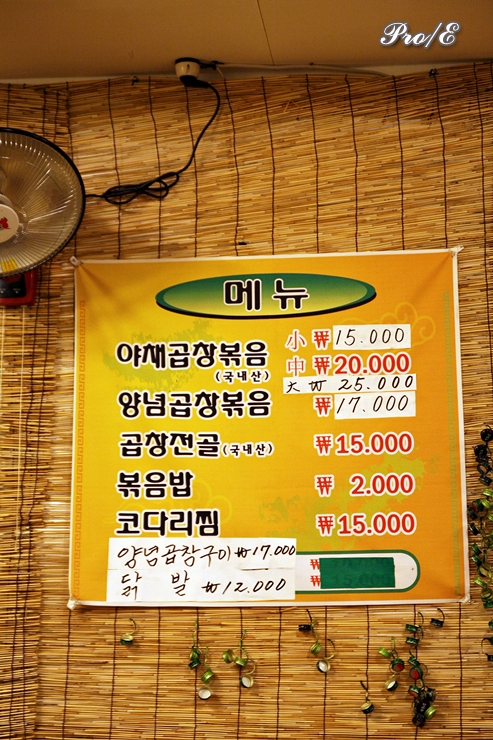 Pro/E
메뉴
야채곱창볶음 小 ₩15.000
(국내산) 中 ₩20.000
大 ₩25.000
양념곱창볶음 ₩17.000
곱창전골(국내산) ₩15.000
볶음밥 ₩2.000
코다리찜 ₩15.000
양념곱창구이 ₩17.000
닭 발 ₩12.000